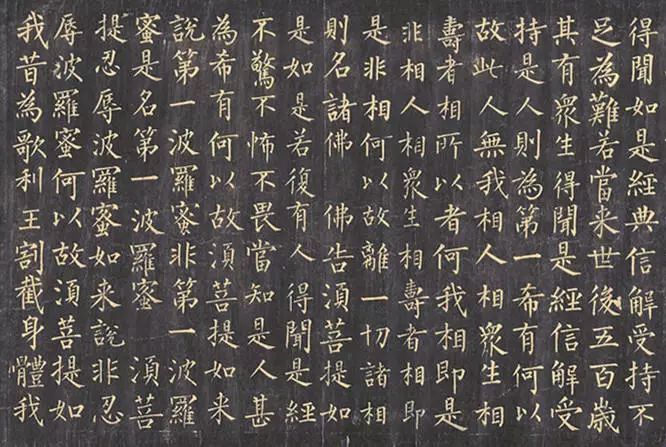 得聞如是經典信解受持不
足為難若當来世後五百歲
其有眾生得聞是經信解受
持是人則為第一希有何以
故此人無我相人相眾生相
壽者相所以者何我相即是
非相人相眾生相壽者相即
是非相何以故離一切諸相
則名諸佛 佛告湏菩提如
是如是若復有人得聞是經
不驚不怖不畏當知是人甚
為希有何以故湏菩提如来
說第一波羅蜜非第一波羅
蜜是名第一波羅蜜 湏菩
提忍辱波羅蜜如来說非忍
辱波羅蜜何以故湏菩提如
我昔為歌利王割截身體我